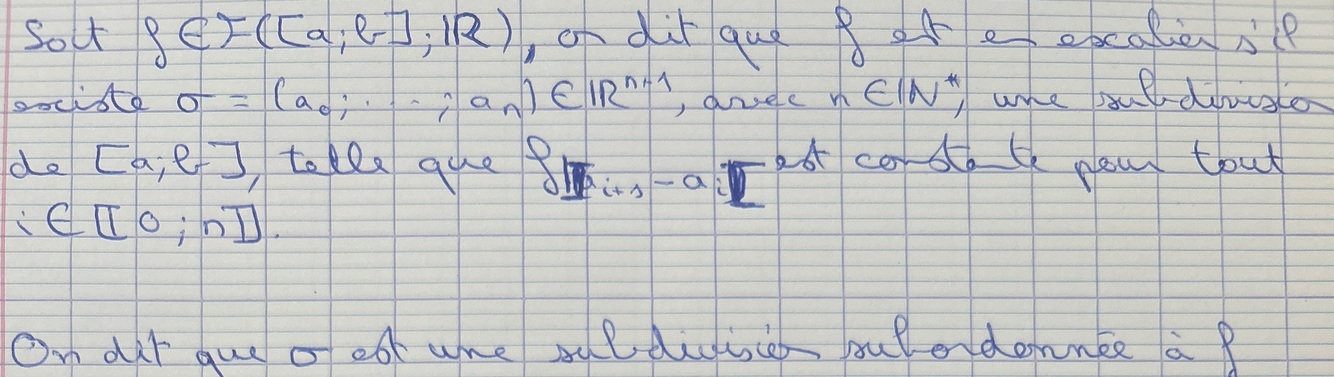 Soit f ∈ F([a;b];ℝ), on dit que f est en escalier s'il
existe σ = (a₀; ...; aₙ) ∈ ℝⁿ⁺¹, avec n ∈ ℕ*, une subdivision
de [a;b], telle que f|]aᵢ₊₁ - aᵢ[ est constante pour tout
i ∈ ⟦0;n⟧.
On dit que σ est une subdivision subordonnée à f